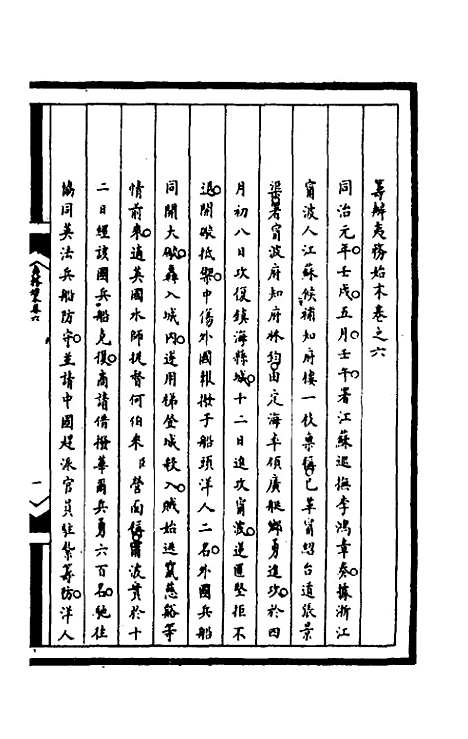 籌辦夷務始末卷之六
同治元年壬戌五月壬午署江蘇巡撫李鴻章奏據浙江
甯波人江蘇候補知府樓一枝稟稱已革甯紹台道張景
渠署甯波府知府林鈞由定海率領廣艇鄉勇進攻於四
月初八日攻復鎮海縣城十二日進攻甯波逆匪堅拒不
退開礮抵禦中傷外國報撥子船頭洋人二名外國兵船
同開大礮轟入城內逆用梯登城殺入賊始逃竄慈谿等
情前來適英國水師提督何伯來臣營面稱甯波實於十
二日經該國兵船克復商請借撥華爾兵勇六百名馳往
協同英法兵船防守並請中國趕派官員駐紮籌防洋人
一